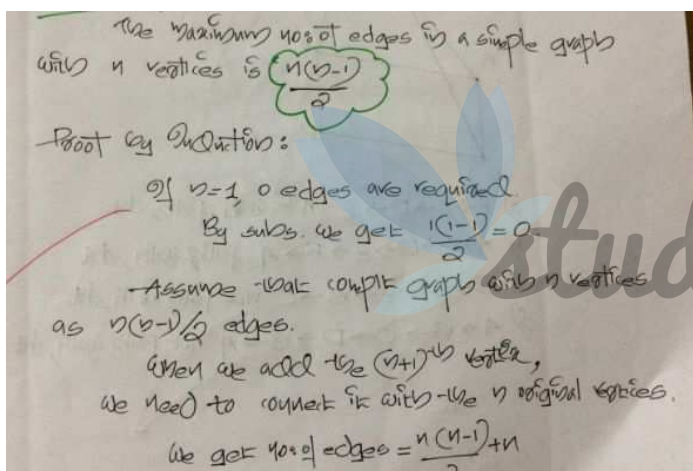 The maximum no: of edges in a simple graph
with n vertices is n(n-1)/2
Proof by Induction:
If n=1, 0 edges are required.
By subs. we get 1(1-1)/2 = 0.
Assume that complt graph with n vertices
as n(n-1)/2 edges.
When we add the (n+1)th vertex,
we need to connect it with the n original vertices.
We get no: of edges = n(n-1)/2 + n
stud